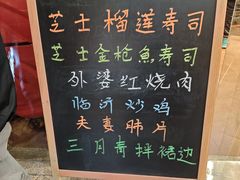 芝士榴莲寿司
芝士金枪魚寿司
外婆红烧肉
临沂炒鸡
夫妻肺片
三月青拌裙边